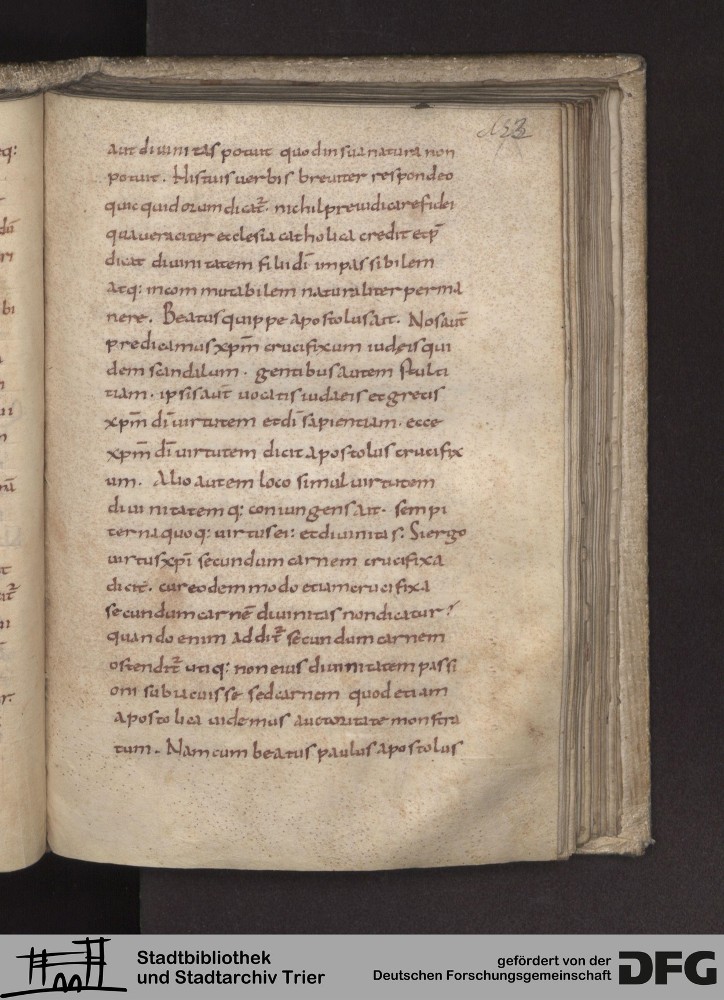 153
aut diuinitas potuit quod in sua natura non
potuit. Histuis uerbis breuiter respondeo
quicquid horum dicat᷑. nichil preiudicare fidei
qua ueraciter ecclesia catholica credit et p̄
dicat diuinitatem filii dī inpassibilem
atq: incommutabilem naturaliter perma
nere. Beatus quippe apostolus ait. Nos aut̄
predicamus xp̄m crucifixum iudęis qui
dem scandalum. gentibus autem stulti
tiam. ipsis aut̄ uocatis iudaeis et grecis
xp̄m dī uirtutem et dī sapientiam. ecce
xp̄m dī uirtutem dicit apostolus crucifix
um. Alio autem loco simul uirtutem
diuinitatemq: coniungens ait. sempi
ternaquoq: uirtus ei: et diuinitas: Si ergo
uirtus xp̄i secundum carnem crucifixa
dicit᷑. cur eodem modo etiam crucifixa
secundum carnē diuinitas non dicatur?
quando enim addit᷑ secundum carnem
ostendit᷑ utiq: non eius diuinitatem passi
oni subiacuisse sed carnem quod etiam
apostolica uidemus auctoritate monstra
tum. Nam cum beatus paulus apostolus
Stadtbibliothek
und Stadtarchiv Trier
gefördert von der
Deutschen Forschungsgemeinschaft
DFG